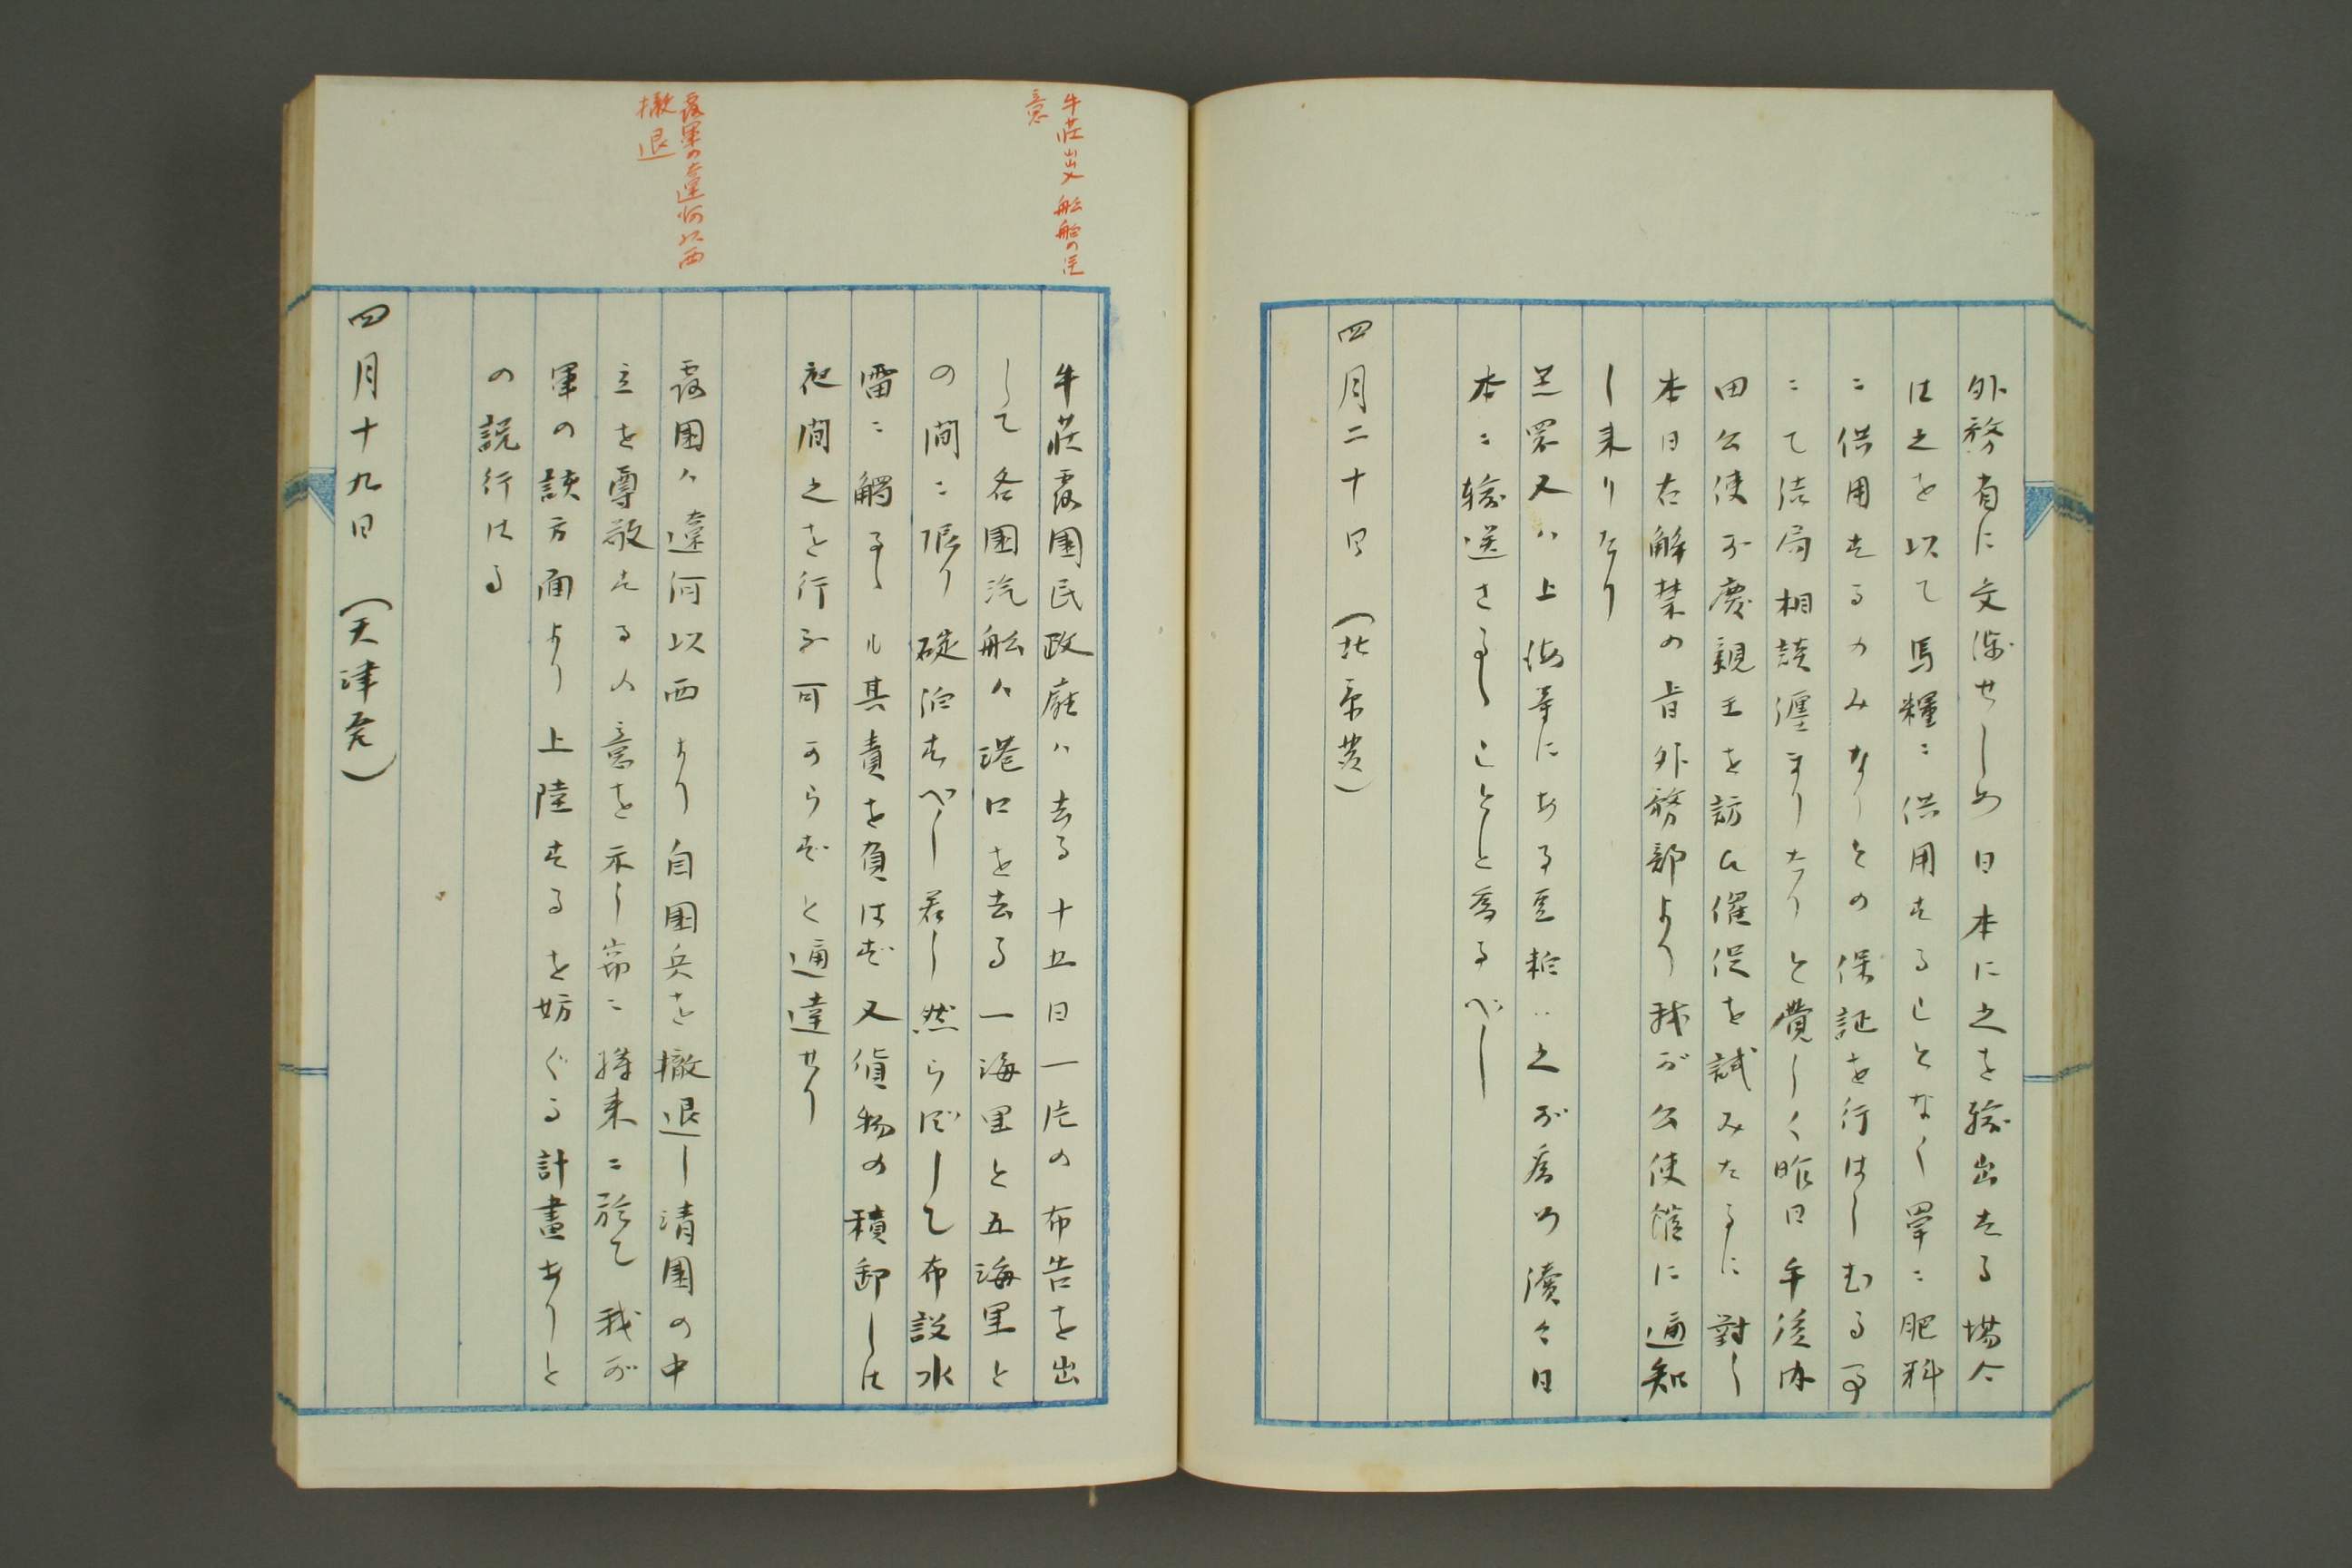 外務省に交渉せしめ日本に之を輸出する場合
は之を以て馬糧ニ供用することなく単ニ肥料
ニ供用するのみなりとの保証を行はしむる事
ニて結局相談纏まりたりと覚しく昨日午後内
田公使が慶親王を訪ひ催促を試みたるに對し
本日右解禁の旨外務部より我が公使館に通知
し来りたり
芝罘又ハ上海等にある豆粕ハ之が為め續々日
本ニ輸送さるゝことと為るべし
四月二十日 (北京發)
牛荘出入船舶の注
意
牛荘露國民政廳ハ去る十五日一片の布告を出
して各國汽船ハ港口を去る一海里と五海里と
の間ニ限り碇泊すべし若し然らずして布設水
雷ニ觸るゝル其責を負はず又貨物の積卸しは
夜間之を行ふ可からずと通達せり
露軍の遼河以西
撤退
露國ハ遼河以西より自國兵を撤退し清國の中
立を尊敬するの意を示し萬ニ将来ニ於て我が
軍の該方面より上陸するを妨ぐる計畫ありと
の説行はる
四月十九日 (天津發)